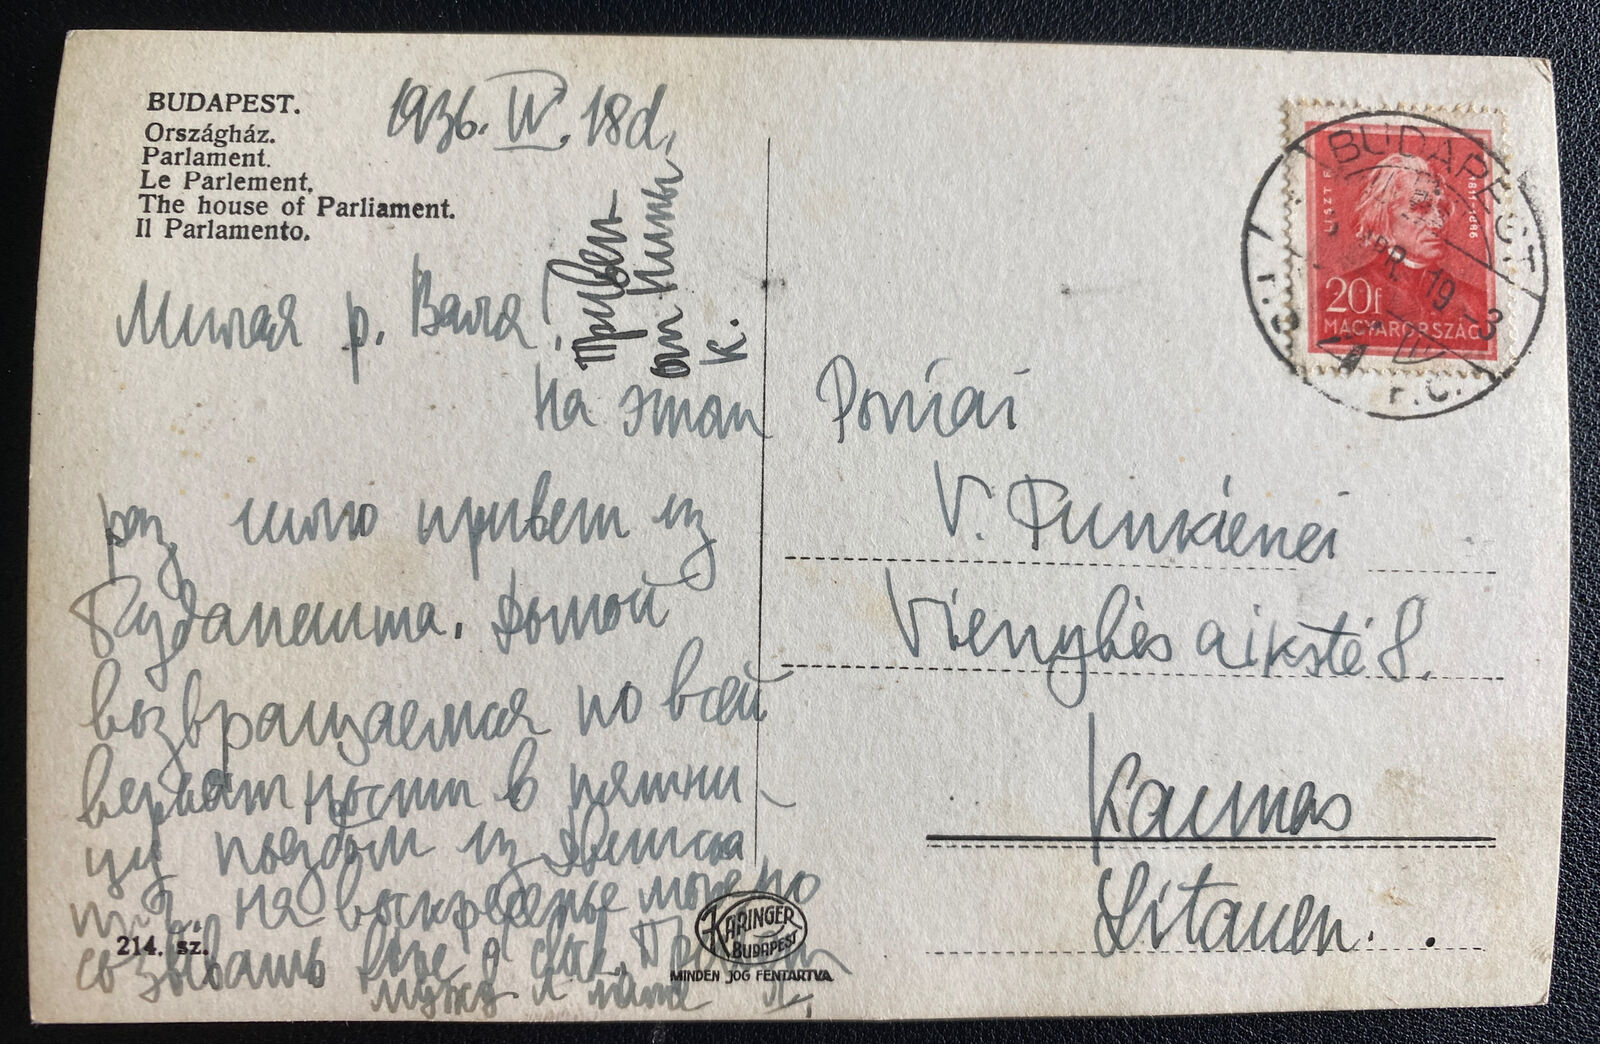 BUDAPEST.
Országház.
Parlament.
Le Parlement.
The house of Parliament.
Il Parlamento.
1936. IV. 18d.
Привет
от Нины
К.
Милая р. Валя!
На этот
раз шлю привет из
Будапешта. Домой
возвращаемся по всей
вероятности в пятни-
цу поездом из
На воскресенье можно
созывать
мужу и
214. sz.
KARINGER
BUDAPEST
MINDEN JOG FENTARTVA
LISZT F. 1811-1886
20f
MAGYARORSZÁG
BUDAPEST
APR. 19
Poniai
V. Funkienei
Vienybės aikštė 8.
Kaunas
Litauen.